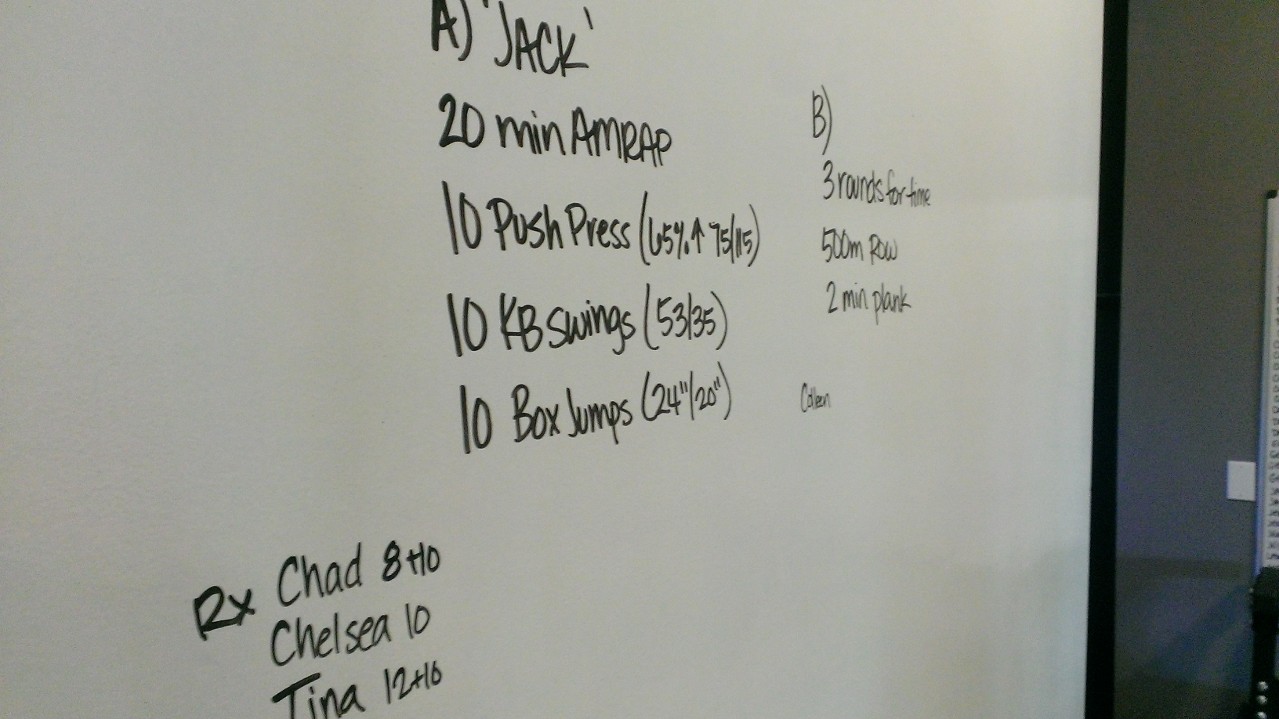 A) 'JACK'
20 min AMRAP
10 Push Press (65%↑ 75/115)
10 KB swings (53/35)
10 Box Jumps (24"/20")
B)
3 rounds for time
500m Row
2 min plank
Colleen
Rx Chad 8+10
Chelsea 10
Tina 12+10